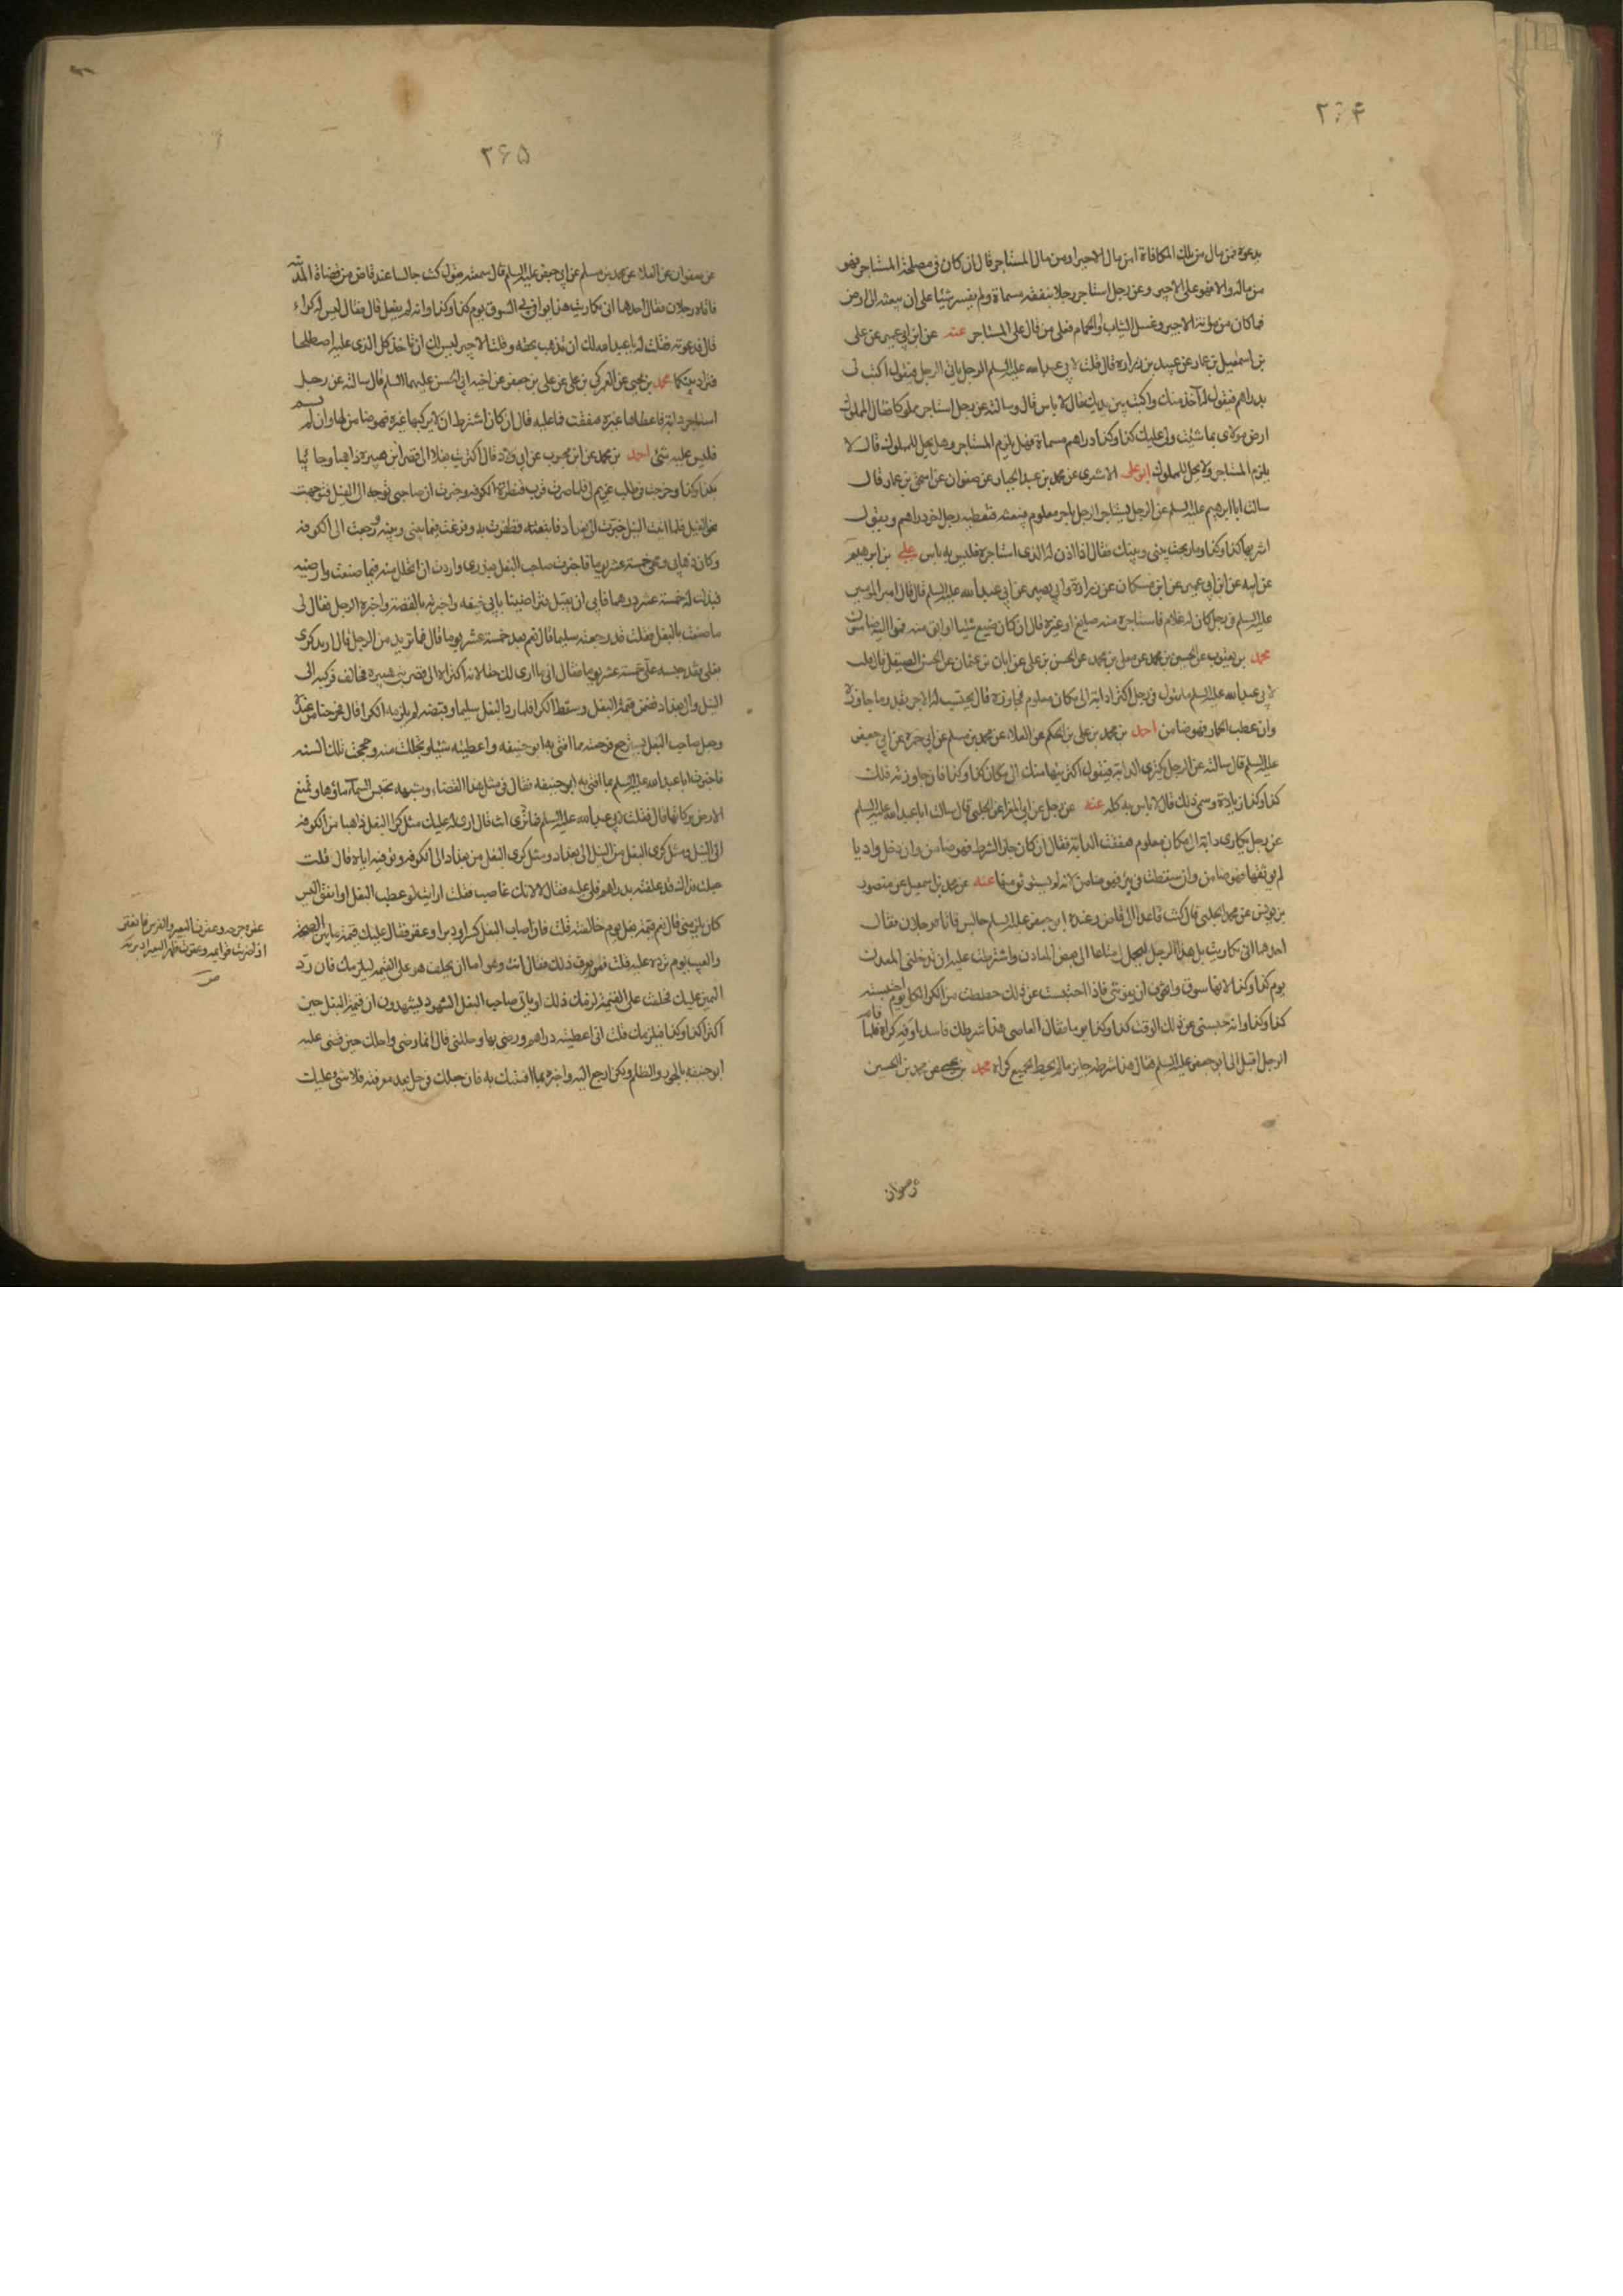 ۲۶۴
يدعوه فمن مال من تلك المكافاة امن مال الاجير او من مال المستاجر قال ان كان فى مصلحة المستاجر فهو
من ماله والا فهو على الاجير وعن رجل استاجر رجلا بنفقة مسماة ولم يفسر شيئا على ان يبعثه الى ارض
فما كان من مؤنة الاجير وغسل الثياب والحمام فعلى من قال على المستاجر عنه عن ابن ابي عمير عن على
بن اسمعيل بن عمار عن عبيد بن زرارة قال قلت لابى عبد الله عليه السلم الرجل ياتى الرجل فيقول اكتب لى
بدراهم فيقول له آخذ منك واكتب بين يديك قال لا باس قال وسالته عن رجل استاجر مملوكا فقال المملوك
ارض مولاى بما شئت ولى عليك كذا وكذا دراهم مسماة فهل يلزم المستاجر وهل يحل للمملوك قال لا
يلزم المستاجر ولا يحل للمملوك ابو على الاشعرى عن محمد بن عبد الجبار عن صفوان عن اسحق بن عمار قال
سالت ابا ابرهيم عليه السلم عن الرجل يستاجر الرجل باجر معلوم فيبعثه فى ضيعته فيعطيه رجل اخر دراهم ويقول
اشتر بهذا كذا وكذا وما ربحت بينى وبينك فقال اذا اذن له الذى استاجره فليس به باس على بن ابرهيم
عن ابيه عن ابن ابى عمير عن ابن مسكان عن زرارة وابى بصير عن ابى عبد الله عليه السلم قال قال امير المومنين
عليه السلم فى رجل كان له غلام فاستاجره منه صايغ او غيره قال ان كان ضيع شيئا او ابق منه فمواليه ضامنون
محمد بن يعقوب عن الحسين بن محمد عن معلى بن محمد عن الحسن بن على عن ابان بن عثمان عن الحسن الصيقل قال قلت
لابى عبد الله عليه السلم ما تقول فى رجل اكترى دابة الى مكان معلوم فجاوزه قال يحتسب له الاجر بقدر ما جاوزه
وان عطب الحمار فهو ضامن احمد بن محمد بن على بن الحكم عن العلاء عن محمد بن مسلم عن ابى حمزة عن ابى جعفر
عليه السلم قال سالته عن الرجل يكترى الدابة فيقول اكتريتها منك الى مكان كذا وكذا فان جاوزته فلك
كذا وكذا زيادة وسمى ذلك قال لا باس به كله عنه عن رجل عن ابى المغرا عن الحلبى قال سالت ابا عبد الله عليه السلم
عن رجل تكارى دابة الى مكان معلوم فنفقت الدابة فقال ان كان جاز الشرط فهو ضامن وان دخل واديا
لم يوثقها فهو ضامن وان سقطت فى بئر فهو ضامن لانه لم يستوثق منها عنه عن محمد بن اسمعيل عن منصور
بن يونس عن محمد الحلبى قال كنت قاعدا الى قاض وعنده ابو جعفر عليه السلم جالس فاتاه رجلان فقال
احدهما انى تكاريت بل هذا الرجل ليحمل لى متاعا الى بعض المعادن واشترطت عليه ان تدخلنى المعدن
يوم كذا وكذا لانها سوق واتخوف ان يفوتنى فاذا احتبست عن ذلك حططت من الكرا لكل يوم احتبسته
كذا وكذا وانه حبسنى عن ذلك الوقت كذا وكذا يوما فقال القاضى هذا شرطك فاسد وفه كراه فلما قام
الرجل اقبل الى ابو جعفر عليه السلم فقال هذا شرطه جايز ما لم يحط بجميع كراه محمد بن يحيى عن محمد بن الحسين
عن صفوان
۲۶۵
عن صفوان عن العلاء عن محمد بن مسلم عن ابى جعفر عليه السلم قال سمعته يقول كنت جالسا عند قاض من قضاة المدينة
فاتاه رجلان فقال احدهما انى تكاريت هذا يوافى بى السوق يوم كذا وكذا وانه لم يفعل قال فقال ليس له كراء
قال فدعوته فقلت له يا عبد الله ليس لك ان تذهب بحقه وقلت للاجير ليس لك ان تاخذ كل الذى عليه اصطلحا
فترادا بينكما محمد بن يحيى عن العمركى بن على عن على بن جعفر عن اخيه ابى الحسن عليهما السلم قال سالته عن رجل
استاجر دابة فاعطاها غيره فنفقت فما عليه قال ان كان اشترط ان لا يركبها غيره فهو ضامن لها وان لم يسم
فليس عليه شئ احمد بن محمد عن ابن محبوب عن ابى ولاد قال اكتريت بغلا الى قصر ابن هبيرة ذاهبا وجائيا
بكذا وكذا وخرجت فى طلب غريم لى فلما صرت قرب قنطرة الكوفه وخبرت ان صاحبى توجه الى النيل فتوجهت
نحو النيل فلما اتيت النيل خبرت انه توجه الى بغداد فاتبعته فظفرت به وفرغت فيما بينى وبينه ورجعت الى الكوفه
وكان ذهابى ومجى خمسة عشر يوما فاخبرت صاحب البغل بعذرى واردت ان اتحلل منه فيما صنعت وارضيه
فبذلت له خمسة عشر درهما فابى ان يقبل فتراضينا بابى حنيفه واخبرته بالقصة واخبره الرجل فقال لى
ما صنعت بالبغل فقلت قد رجعته سليما قال نعم بعد خمسة عشر يوما قال فما تريد من الرجل قال اريد كرى
بغلى فقد حبسه على خمسة عشر يوما فقال انى ما ارى لك حقا لانه اكتراه الى قصر بنى هبيره فخالف فركبه الى
النيل والى بغداد فضمن قيمة البغل وسقط الكرا فلما رد البغل سليما وقبضته لم يلزمه الكرا قال فخرجنا من عنده
وجعل صاحب البغل يسترجع فرحمته مما افتى به ابو حنيفه واعطيته شيئا وتحللت منه وحججت تلك السنه
فاخبرت ابا عبد الله عليه السلم بما افتى به ابو حنيفه فقال فى مثل هذا القضاء وشبهه تحبس السماء ماؤها وتمنع
الارض بركاتها قال فقلت لابى عبد الله عليه السلم فما ترى انت قال ارى له عليك مثل كرا البغل ذاهبا من الكوفه
الى النيل ومثل كرى البغل من النيل الى بغداد ومثل كرى البغل من بغداد الى الكوفه وتوفيه اياه قال قلت
جعلت فداك قد علفته بدراهم فلى عليه علفه فقال لا لانك غاصب فقلت ارايت لو عطب البغل او انفق اليس
كان يلزمنى قال نعم قيمة بغل يوم خالفته قلت فان اصاب البغل كسر او دبر او عقر فقال عليك قيمة ما بين الصحة
والعيب يوم ترده عليه قلت فمن يعرف ذلك فقال انت وهو اما ان يحلف هو على القيمه فيلزمك فان رد
اليمين عليك فحلفت على القيمة لزمك ذلك او ياتى صاحب البغل بشهود يشهدون ان قيمة البغل حين
اكترى كذا وكذا فيلزمك قلت انى اعطيته دراهم ورضى بها وحللنى قال انما رضى واحلك حين قضى عليه
ابو حنيفه بالجور والظلم ولكن ارجع اليه واخبره بما افتيتك به فان جعلك فى حل بعد معرفته فلا شئ عليك
عقره جرحه وعقرت البعير والفرس فانعقر
اذا ضربت قوائمه وعقرت ظهر البعير ادبرته
ص